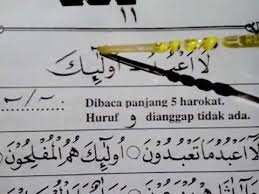 ١١
لَا أَعْبُدُ أُولَٰٓئِكَ
Dibaca panjang 5 harokat.
Huruf و dianggap tidak ada.
لَآ أَعْبُدُ مَا تَعْبُدُونَ ○ أُولَٰٓئِكَ هُمُ الْمُفْلِحُونَ